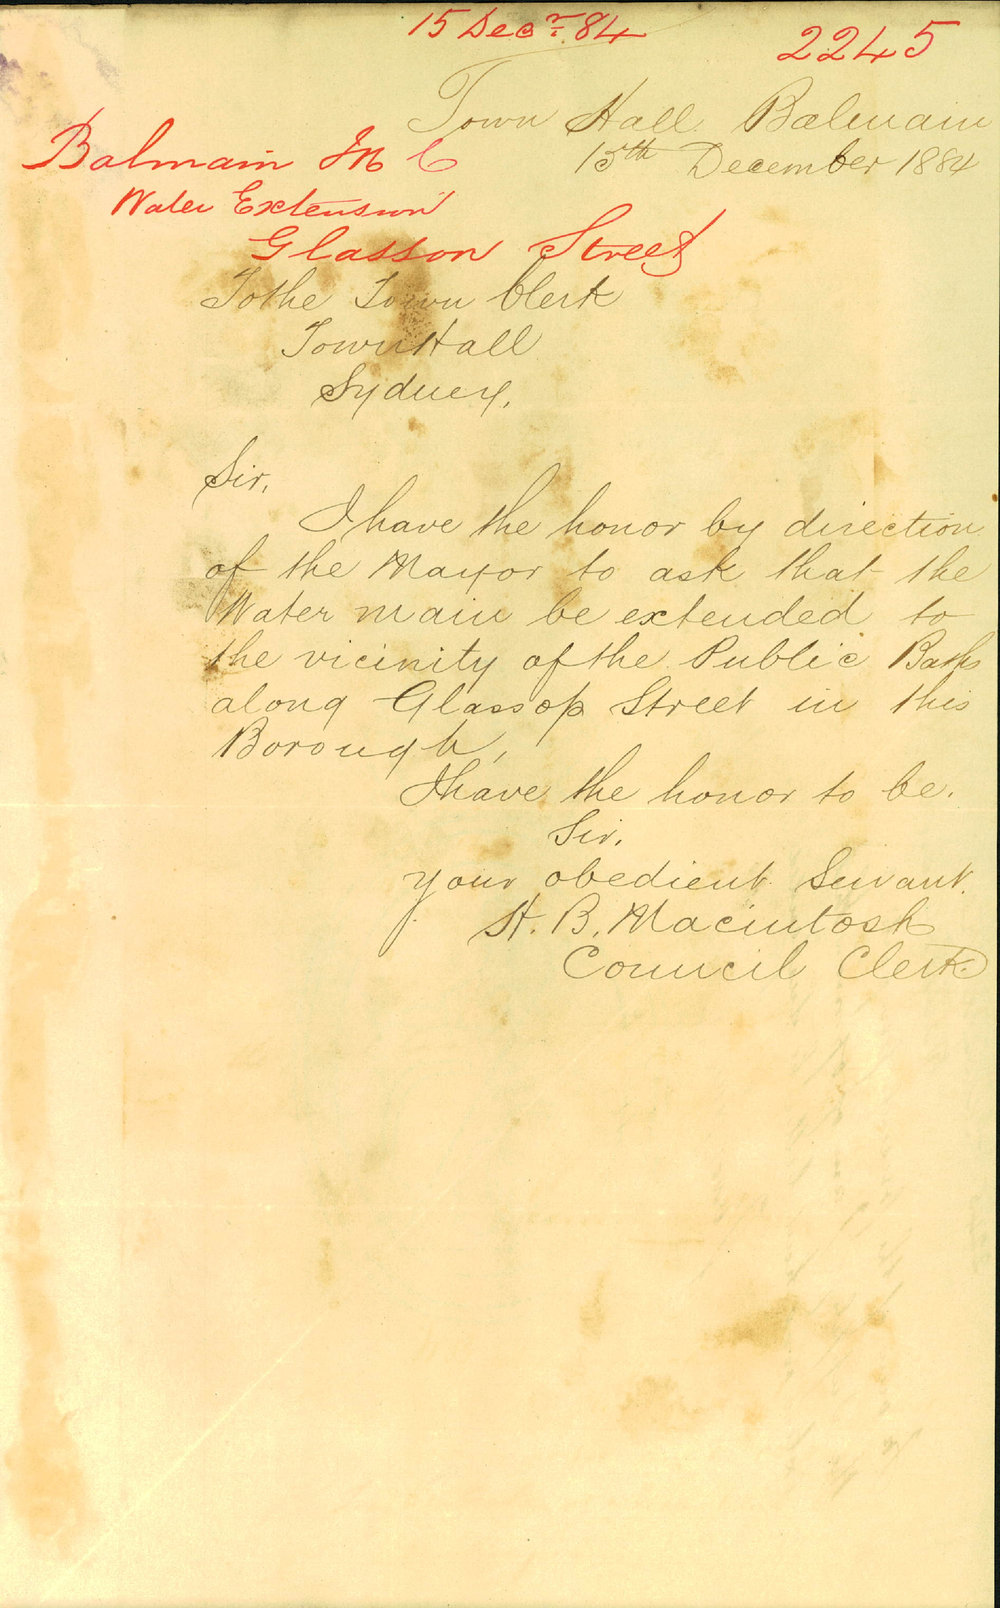 15 Decr. 84
2245
Town Hall Balmain
15th December 1884
Balmain M C
Water Extension
Glasson Street
To the Town Clerk
Town Hall
Sydney.
Sir,
I have the honor by direction
of the Mayor to ask that the
Water main be extended to
the vicinity of the Public Baths
along Glassop Street in this
Borough,
I have the honor to be.
Sir.
your obedient Servant.
H. B. Macintosh
Council Clerk.